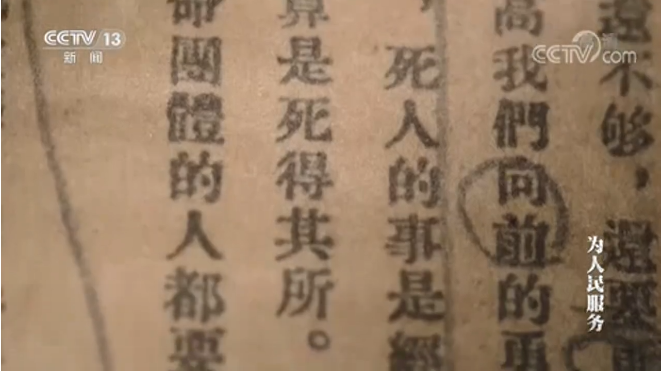 CCTV 13
新闻
CCTV.com
還不够，還要
高我們向前的勇
死人的事是經
算是死得其所。
命團體的人都要
为人民服务